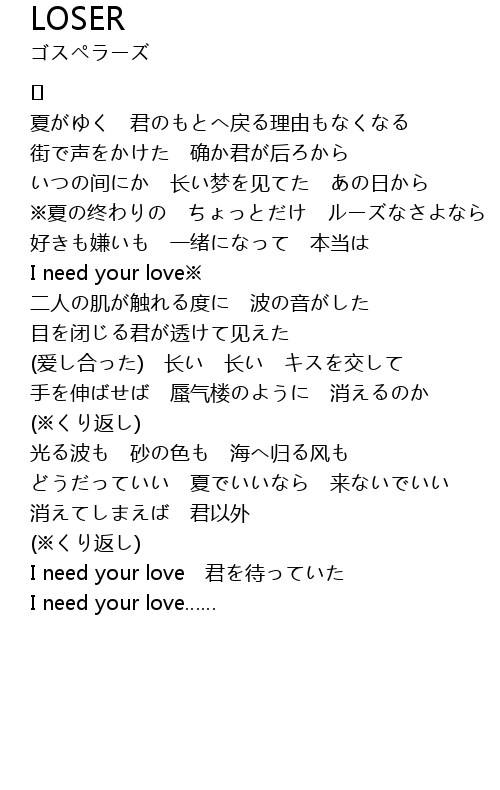 LOSER
ゴスペラーズ
[]
夏がゆく　君のもとへ戻る理由もなくなる
街で声をかけた　确か君が后ろから
いつの间にか　长い梦を见てた　あの日から
※夏の终わりの　ちょっとだけ　ルーズなさよなら
好きも嫌いも　一绪になって　本当は
I need your love※
二人の肌が触れる度に　波の音がした
目を闭じる君が透けて见えた
(爱し合った)　长い　长い　キスを交して
手を伸ばせば　蜃气楼のように　消えるのか
(※くり返し)
光る波も　砂の色も　海へ归る风も
どうだっていい　夏でいいなら　来ないでいい
消えてしまえば　君以外
(※くり返し)
I need your love　君を待っていた
I need your love......